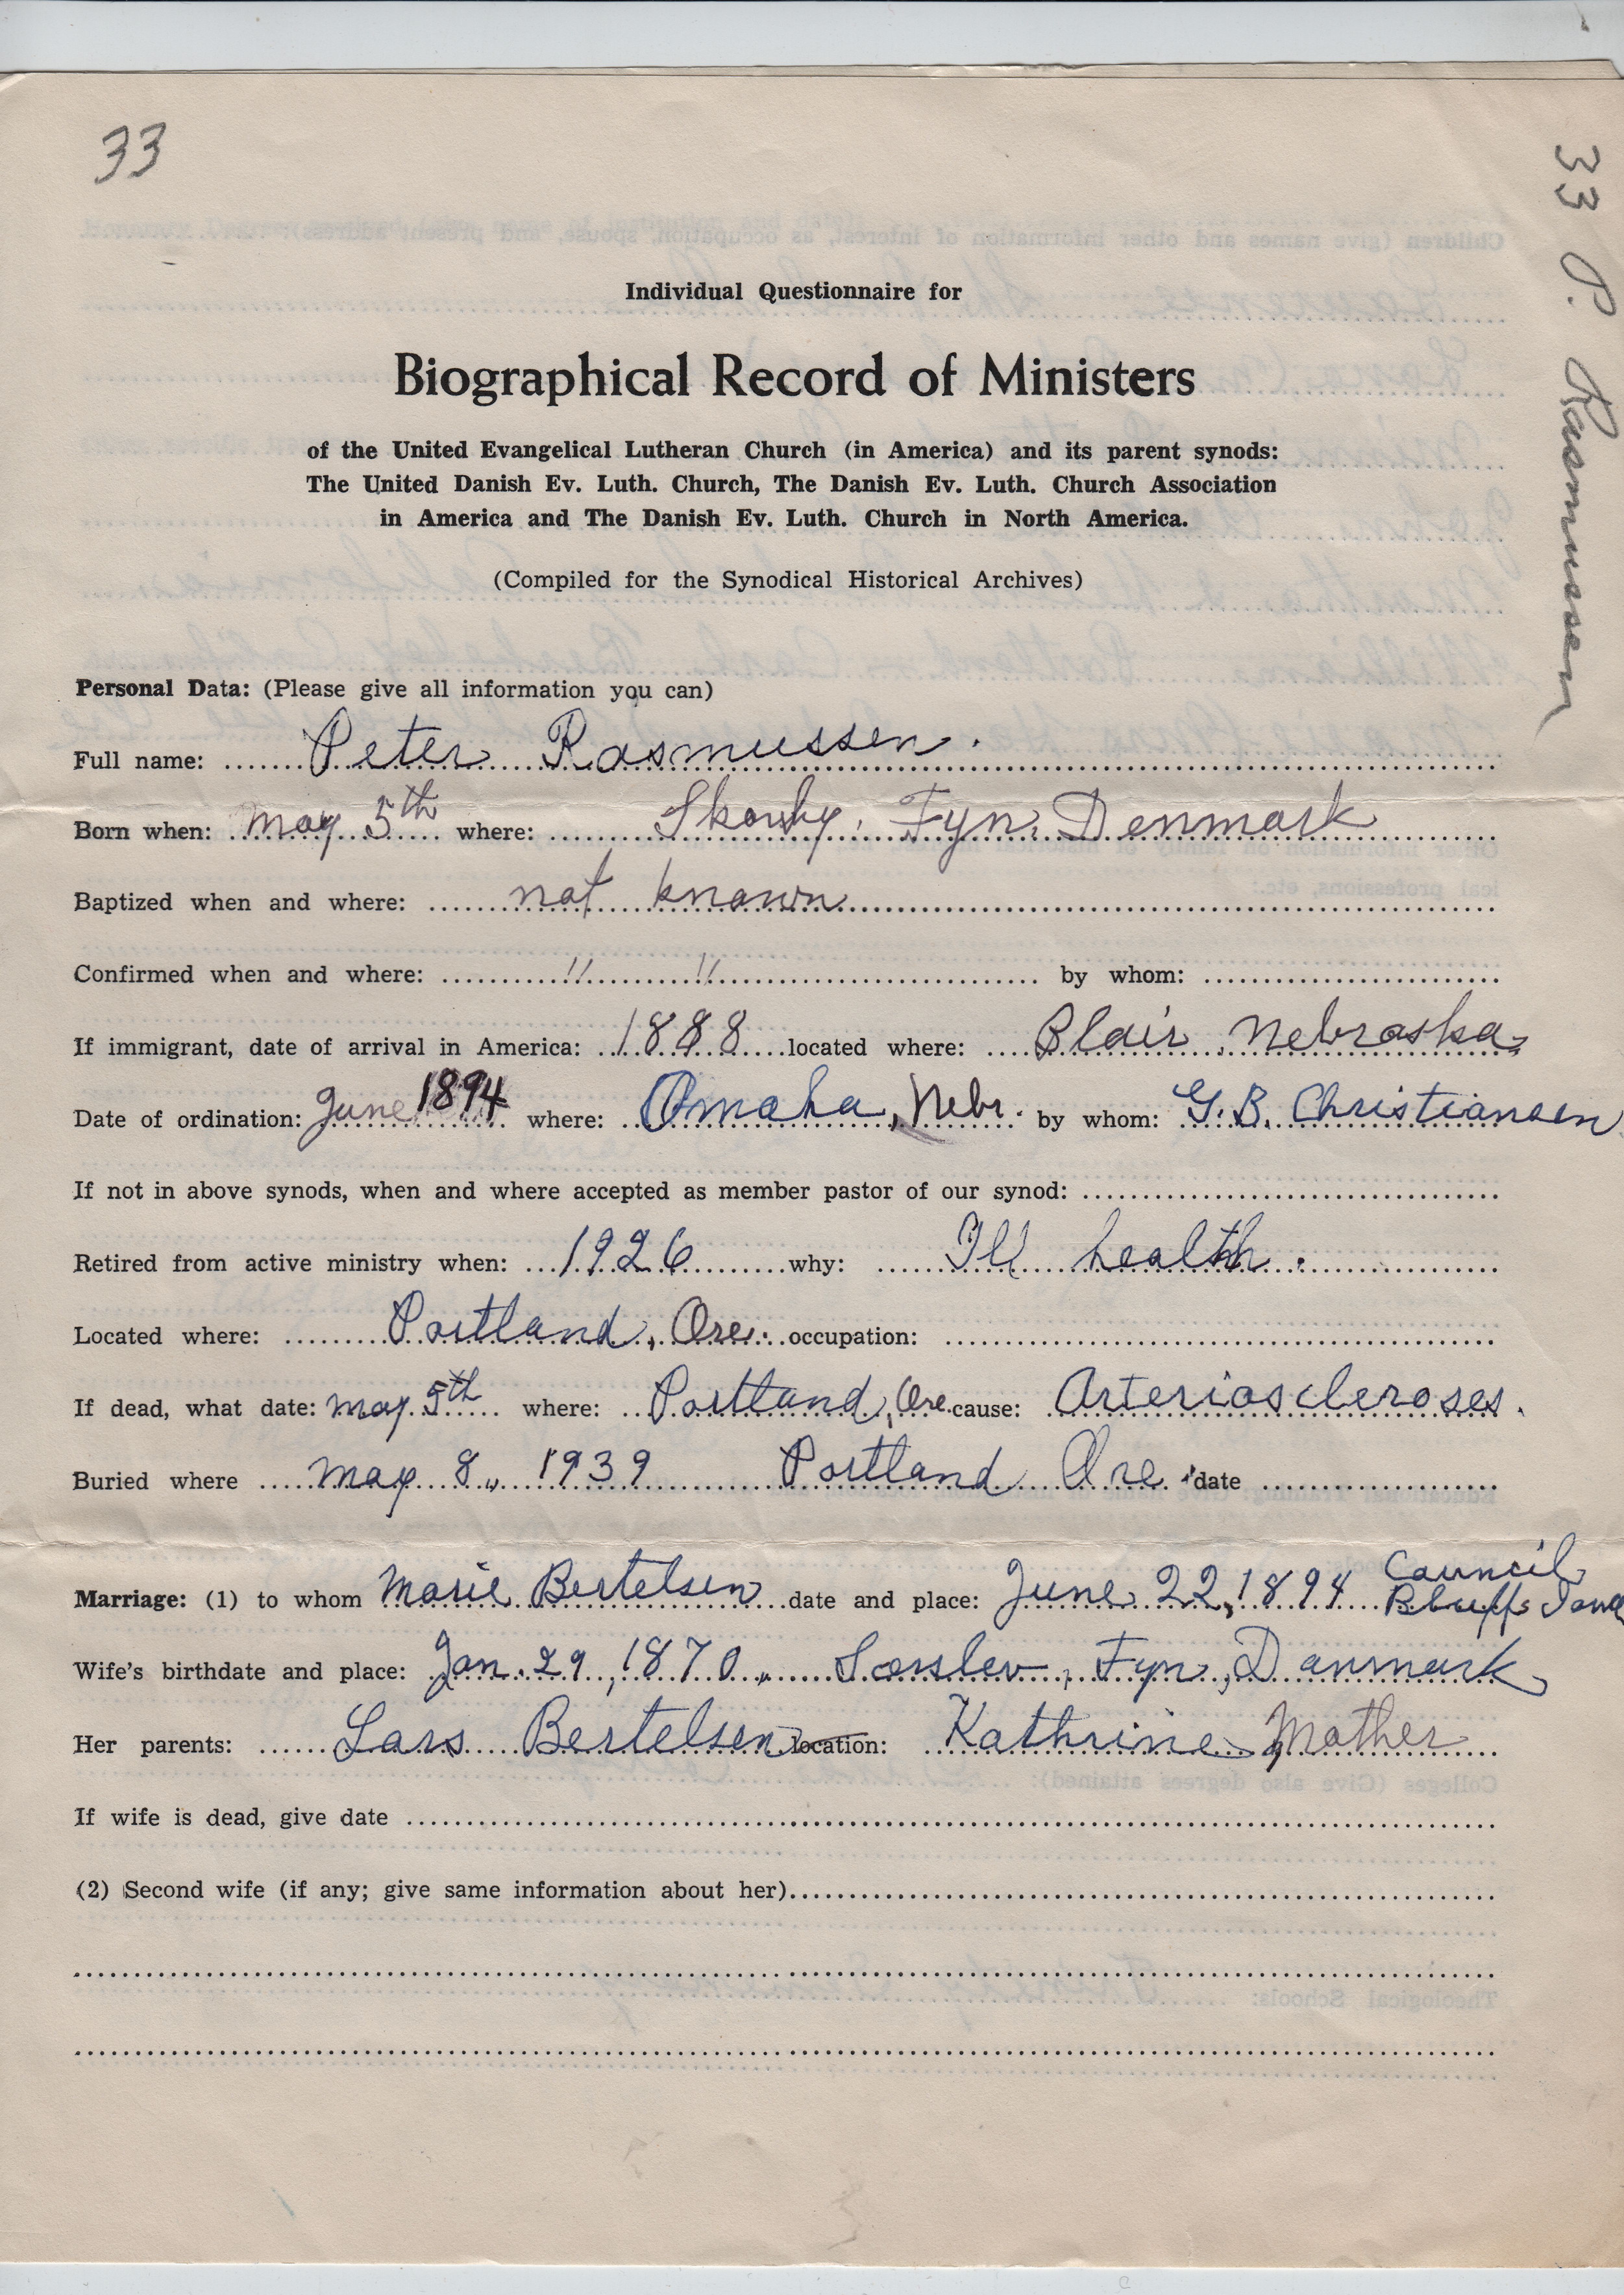 33
33 P. Rasmussen
Individual Questionnaire for
Biographical Record of Ministers
of the United Evangelical Lutheran Church (in America) and its parent synods:
The United Danish Ev. Luth. Church, The Danish Ev. Luth. Church Association
in America and The Danish Ev. Luth. Church in North America.
(Compiled for the Synodical Historical Archives)
Personal Data: (Please give all information you can)
Full name: Peter Rasmussen.
Born when: May 5th where: Skovby, Fyn, Denmark
Baptized when and where: not known
Confirmed when and where: " " by whom:
If immigrant, date of arrival in America: 1888 located where: Blair, Nebraska,
Date of ordination: June 1894 where: Omaha, Nebr. by whom: G. B. Christiansen
If not in above synods, when and where accepted as member pastor of our synod:
Retired from active ministry when: 1926 why: Ill health.
Located where: Portland, Ore. occupation:
If dead, what date: May 5th where: Portland, Ore. cause: Arterioscleroses.
Buried where May 8, 1939 Portland Ore. date
Marriage: (1) to whom Marie Bertelsen date and place: June 22, 1894 Council Bluffs Iowa
Wife's birthdate and place: Jan. 29, 1870, Fyn, Danmark
Her parents: Lars Bertelsen location: Kathrine Mother
If wife is dead, give date
(2) Second wife (if any; give same information about her)